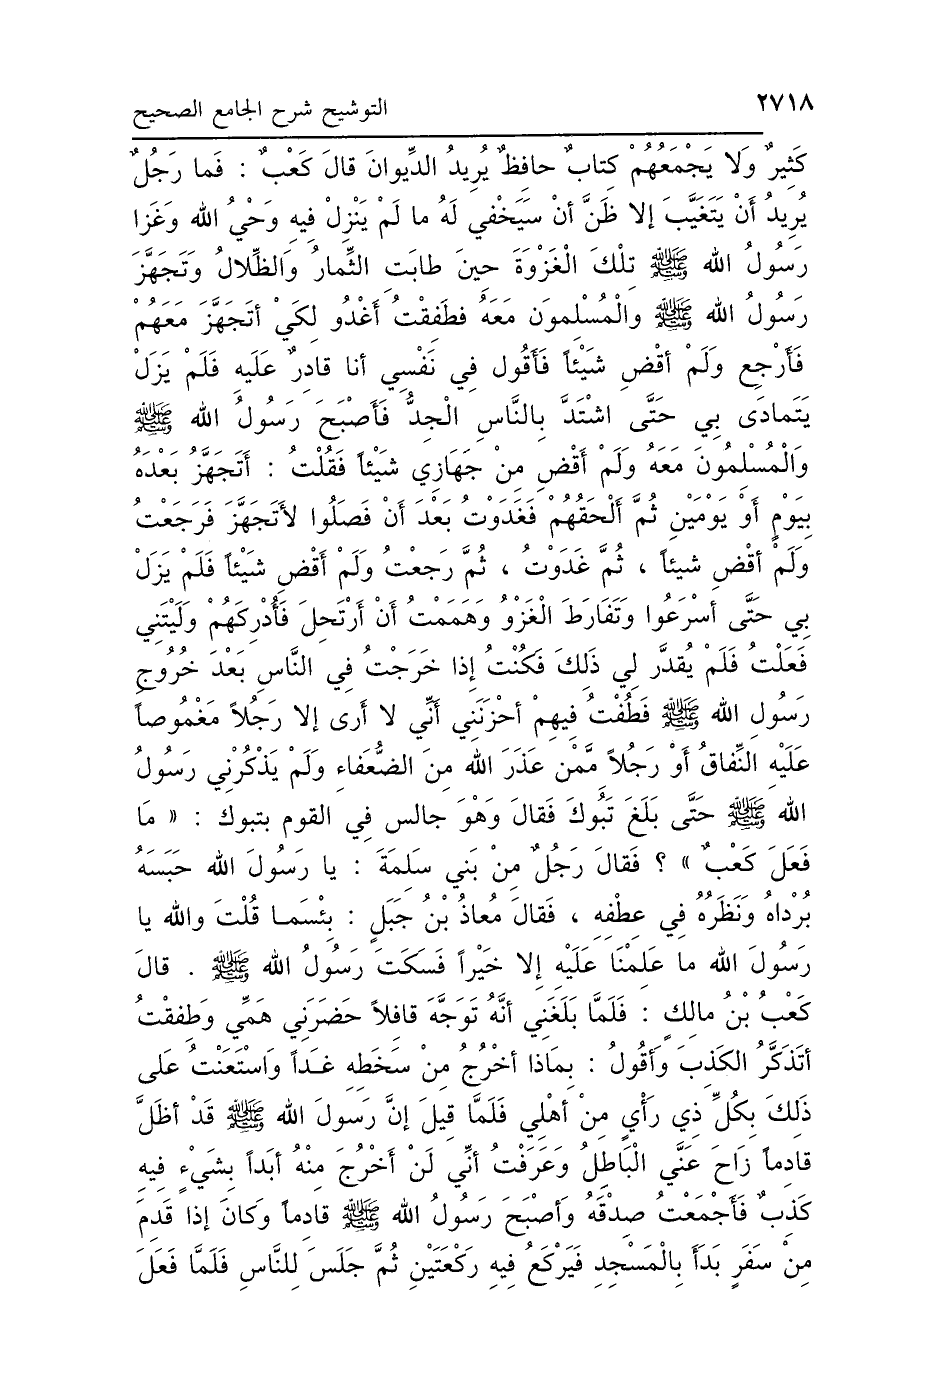 ٢٧١٨
التوشيح شرح الجامع الصحيح
كَثِيرٌ وَلَا يَجْمَعُهُمْ كتابٌ حافظٌ يُرِيدُ الدِّيوانَ قالَ كَعْبٌ : فَما رَجُلٌ
يُرِيدُ أَنْ يَتَغَيَّبَ إلا ظَنَّ أنْ سَيَخْفي لَهُ ما لَمْ يَنْزِلْ فيهِ وَحْيُ الله وَغَزا
رَسُولُ الله ﷺ تلْكَ الْغَزْوَةَ حينَ طابَت الثِّمارُ وَالظِّلالُ وَتَجَهَّزَ
رَسُولُ الله ﷺ والْمُسْلمون مَعَهُ فطَفقْتُ أَغْدُو لكَيْ أتَجَهَّزَ مَعَهُم
فَأَرْجِع وَلَمْ أقْضِ شَيْئاً فَأَقُول في نَفْسِي أنا قادِرٌ عَلَيهِ فَلَمْ يَزَلْ
يَتَمادَى بي حَتَّى اشْتَدَّ بالنَّاس الْجدُّ فَأصْبَحَ رَسُولُ الله ﷺ
وَالْمُسْلِمُونَ مَعَهُ وَلَمْ أَقْضِ مِنْ جَهَازِي شَيْئاً فَقُلْتُ : أَتَجَهَّزُ بَعْدَهُ
بِيَوْمٍ أَوْ يَوْمَيْنِ ثُمَّ أَلْحَقُهُمْ فَغَدَوْتُ بَعْدَ أَنْ فَصَلُوا لأَتَجَهَّزَ فَرَجَعْتُ
وَلَمْ أقْضِ شيئاً ، ثُمَّ غَدَوْتُ ، ثُمَّ رَجعْتُ وَلَمْ أَقْضِ شَيْئاً فَلَمْ يَزَلْ
بي حَتَّى أسْرَعُوا وَتَفَارَطَ الْغَزْوُ وَهَمَمْتُ أَنْ أَرْتَحلَ فَأُدْرِكَهُمْ وَلَيْتَني
فَعَلْتُ فَلَمْ يُقدَّر لي ذَلِكَ فَكُنْتُ إذا خَرَجْتُ في النَّاسِ بَعْدَ خُرُوجِ
رَسُولِ الله ﷺ فَطُفْتُ فيهِمْ أحْزَنَني أَنِّي لا أَرى إلا رَجُلاً مَغْمُوصاً
عَلَيْهِ النِّفاقُ أَوْ رَجُلاً مِمَّنْ عذَرَ الله منَ الضُّعَفَاء ولَمْ يَذْكُرْني رَسُولُ
الله ﷺ حَتَّى بَلَغَ تَبُوكَ فَقالَ وَهْوَ جالس في القوم بتبوك : « مَا
فَعَلَ كَعْبٌ » ؟ فَقالَ رَجُلٌ مِنْ بَني سَلمَةَ : يا رَسُولَ الله حَبَسَهُ
بُرْداهُ وَنَظَرُهُ في عطْفِهِ ، فَقالَ مُعاذُ بْنُ جَبَلٍ : بئْسَما قُلْتَ والله يا
رَسُولَ الله ما عَلمْنَا عَلَيْهِ إلا خَيْراً فَسكَتَ رَسُولُ الله ﷺ . قالَ
كَعْبُ بْنُ مالكٍ : فَلَمَّا بَلَغَني أنَّهُ تَوَجَّهَ قافلاً حضَرَني هَمِّي وَطَفقْتُ
أتَذَكَّرُ الكَذبَ وَأقُولُ : بمَاذا أخْرُجُ منْ سَخَطِهِ غَداً وَاسْتَعَنْتُ عَلى
ذَلكَ بِكُلِّ ذي رَأْيٍ مِنْ أهْلِي فَلَمَّا قيلَ إنَّ رَسُولَ الله ﷺ قَدْ أظَلَّ
قادماً زَاحَ عَنِّي الْبَاطِلُ وَعَرَفْتُ أنِّي لَنْ أَخْرُجَ مِنْهُ أبَداً بشَيْءٍ فيهِ
كَذبٌ فَأَجْمَعْتُ صدْقَهُ وَأصْبَحَ رَسُولُ الله ﷺ قادماً وَكانَ إذا قَدمَ
مِنْ سَفَرٍ بَدَأَ بالْمَسْجِدِ فَيَرْكَعُ فيهِ رَكْعَتَيْنِ ثُمَّ جَلَسَ للنَّاسِ فَلَمَّا فَعَلَ